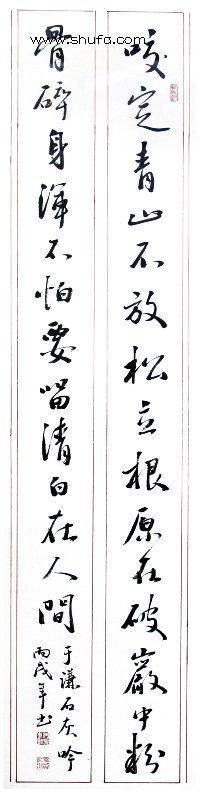 www.shufa.com
咬定青山不放松立根原在破巖中粉
骨碎身渾不怕要留清白在人間
于谦石灰吟
丙戌年书